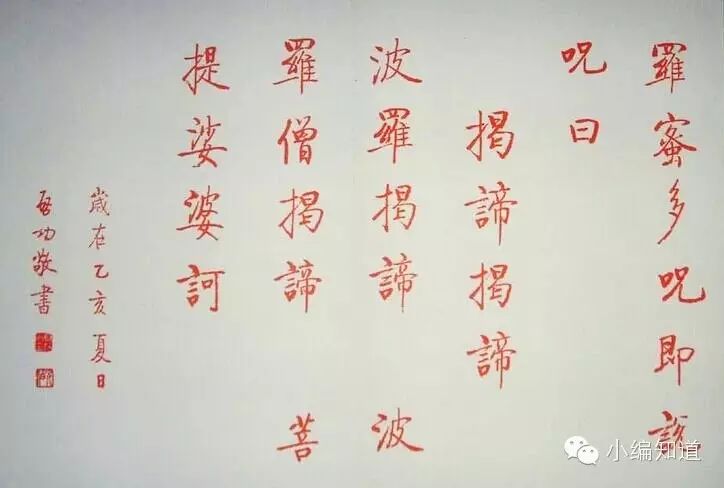 羅蜜多呪即説
呪曰
揭諦揭諦
波羅揭諦 波
羅僧揭諦 菩
提娑婆訶
歲在乙亥夏日
啓功敬書
小编知道